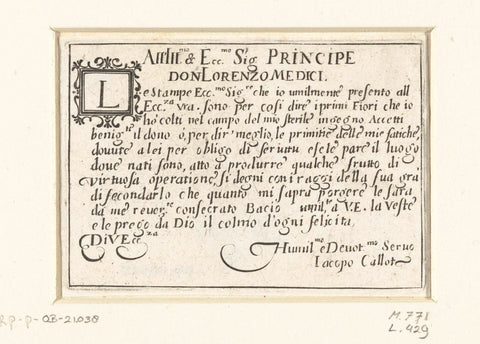 All Ill.mo & Ecc.mo Sig.r PRINCIPE
DON LORENZO MEDICI.
Le Stampe Ecc.mo Sig.re che io umilmente presento all
Ecc.za vra. sono per cosi dire i primi Fiori che io
ho colti nel campo del mio sterile ingegno Accetti
benig.te il dono ò, per dir' meglio, le primitie delle mie fatiche,
douute a lei per obligo di seruitu e se le pare il luogo
doue nati sono, atto a produrre qualche frutto di
virtuosa operatione, si degni con i raggi della sua gra
di fecondarlo che quanto mi saprà porgere le sarà
da me reuer.te consecrato Bacio umil.te a V.E. la Veste
e le prego da Dio il colmo d'ogni felicita,
Di V. Ecc.za
Humil.mo e Deuot.mo Seruo
Iacopo Callot
RP-P-OB-21.038
M. 771
L. 429